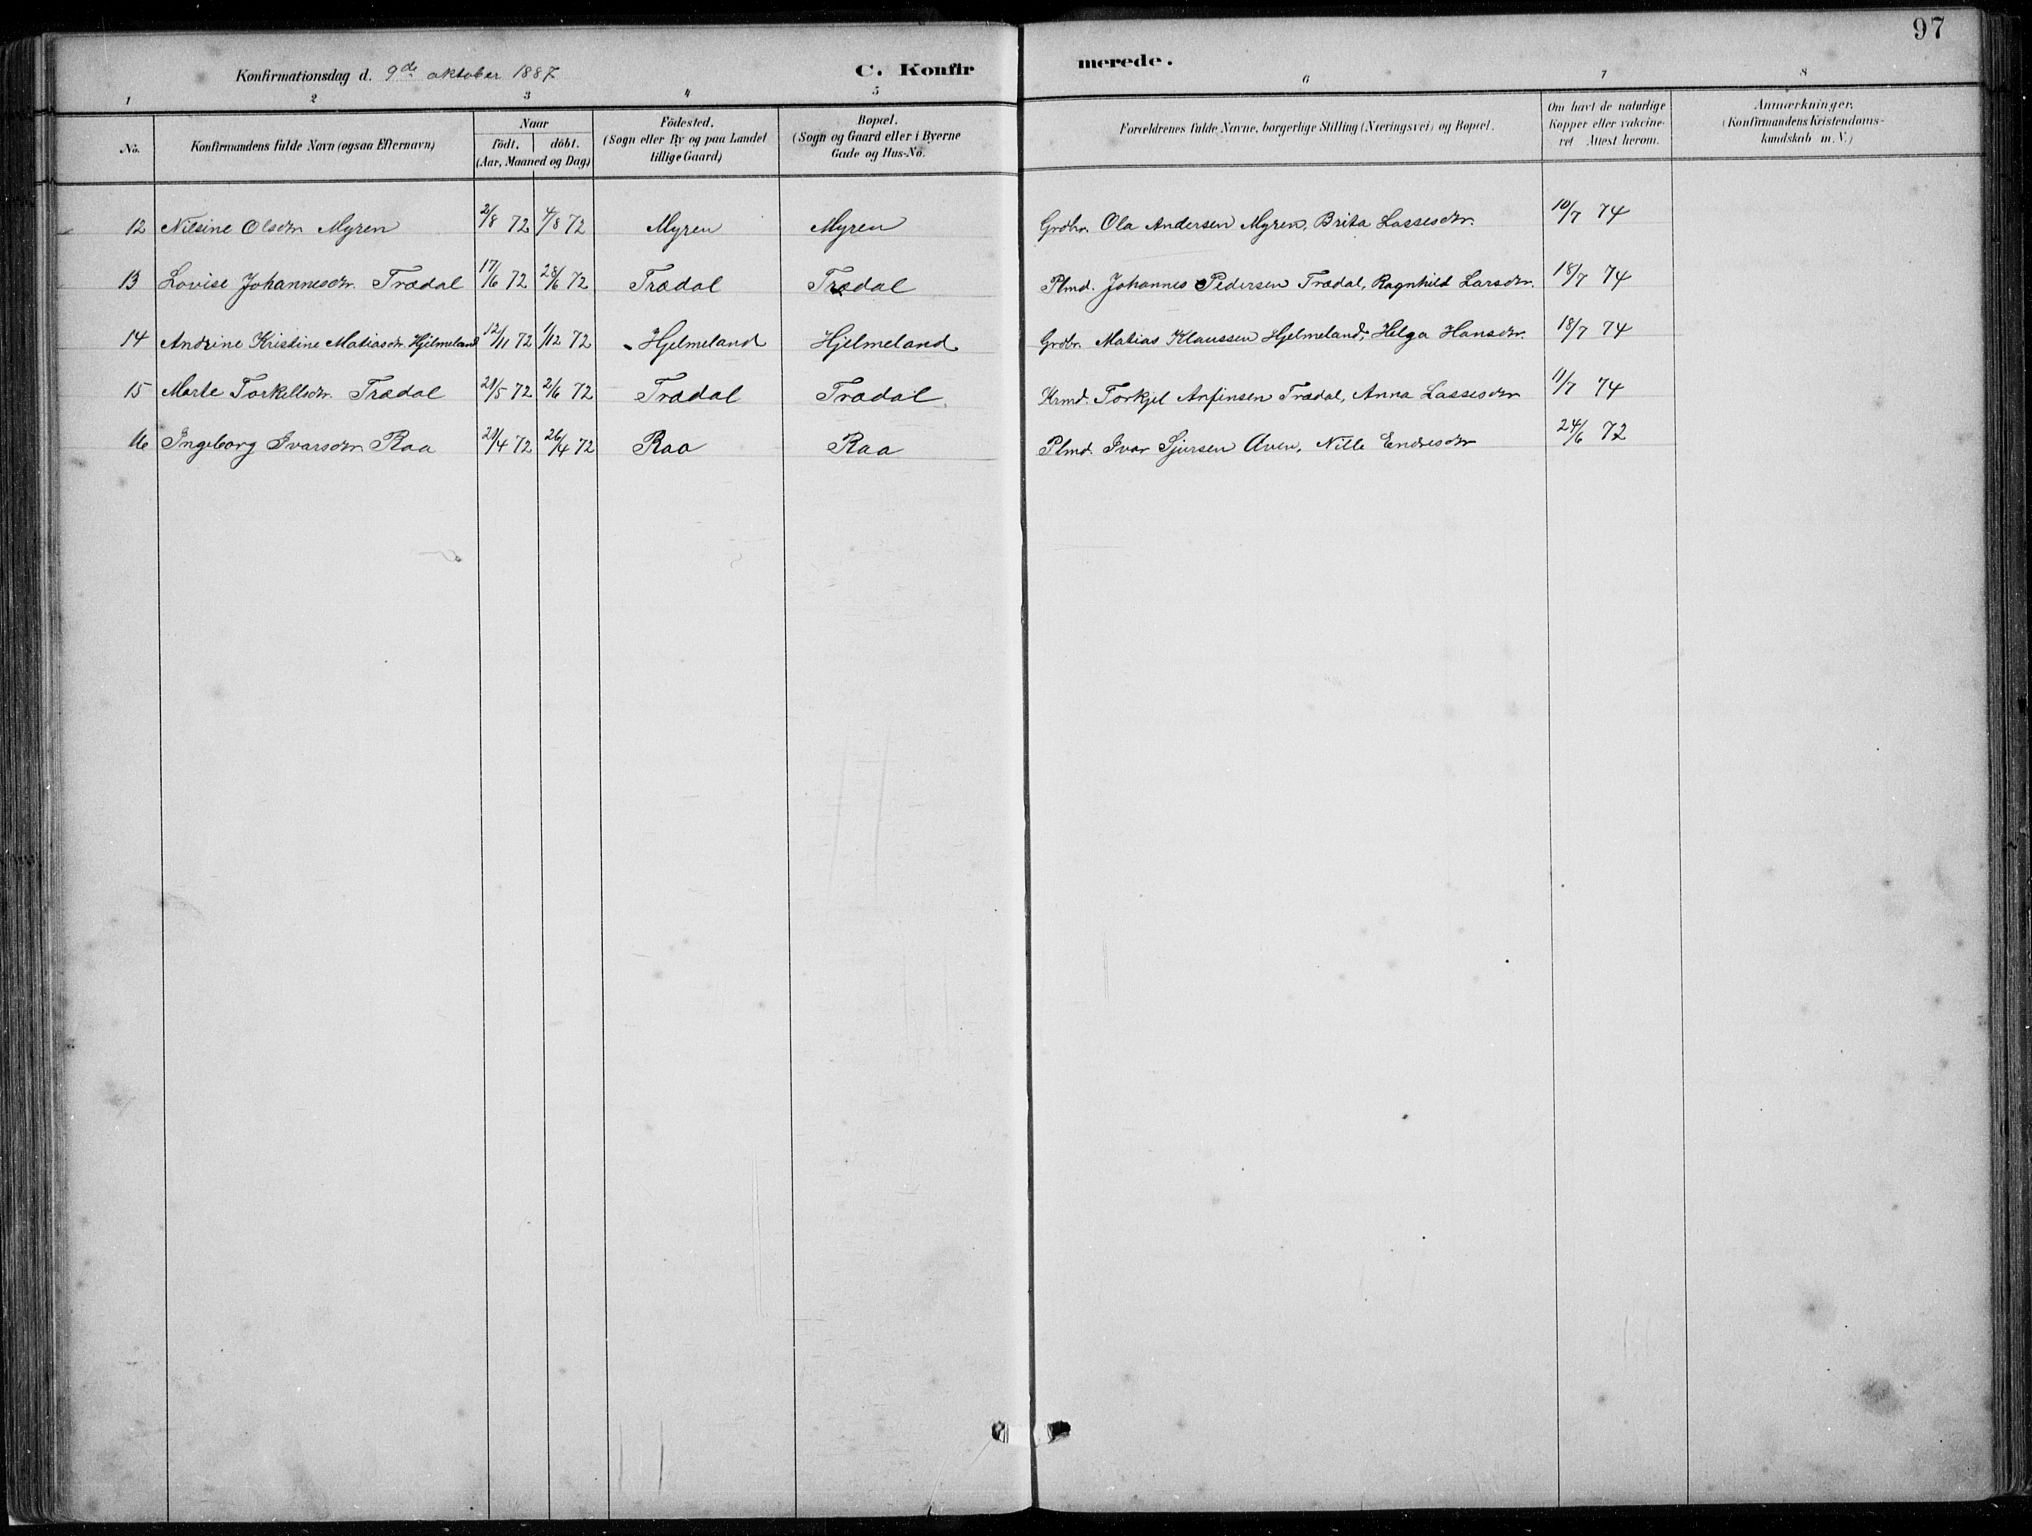 97
Konfirmationsdag d. 9de oktober 1887 C. Konfir merede.
1 2 3 4 5 6 7 8
No. Konfirmandens fulde Navn (ogsaa Efternavn) Naar födt. döbt. (Aar, Maaned og Dag) Födested. (Sogn eller By og paa Landet tillige Gaard) Bopæl. (Sogn og Gaard eller i Byerne Gade og Hus-No. Forældrenes fulde Navne, borgerlige Stilling (Næringsvei) og Bopæl. Om havt de naturlige Kopper eller vakcineret Attest herom. Anmærkninger. (Konfirmandens Kristendomskundskab m. V.)
12 Nilsine Olsdtr Myren 2/8 72 4/8 72 Myren Myren Grdbr. Ola Andersen Myren, Brita Lassesdtr. 10/7 74
13 Lovise Johannesdtr. Trædal 17/6 72 28/6 72 Trædal Trædal Plmd. Johannes Pedersen Trædal, Ragnhild Larsdtr. 18/7 74
14 Andrine Kristine Matiasdtr. Hjelmeland 12/11 72 1/12 72 Hjelmeland Hjelmeland Grdbr. Matias Klaussen Hjelmeland, Helga Hansdtr. 18/7 74
15 Marte Torkellsdtr. Trædal 21/5 72 2/6 72 Trædal Trædal Krmd. Torkjel Anfinsen Trædal, Anna Lassesdtr 11/7 74
16 Ingeborg Ivarsdtr. Raa 21/4 72 26/4 72 Raa Raa Plmd. Ivar Sjursen Aven, Nille Endresdtr 24/6 72